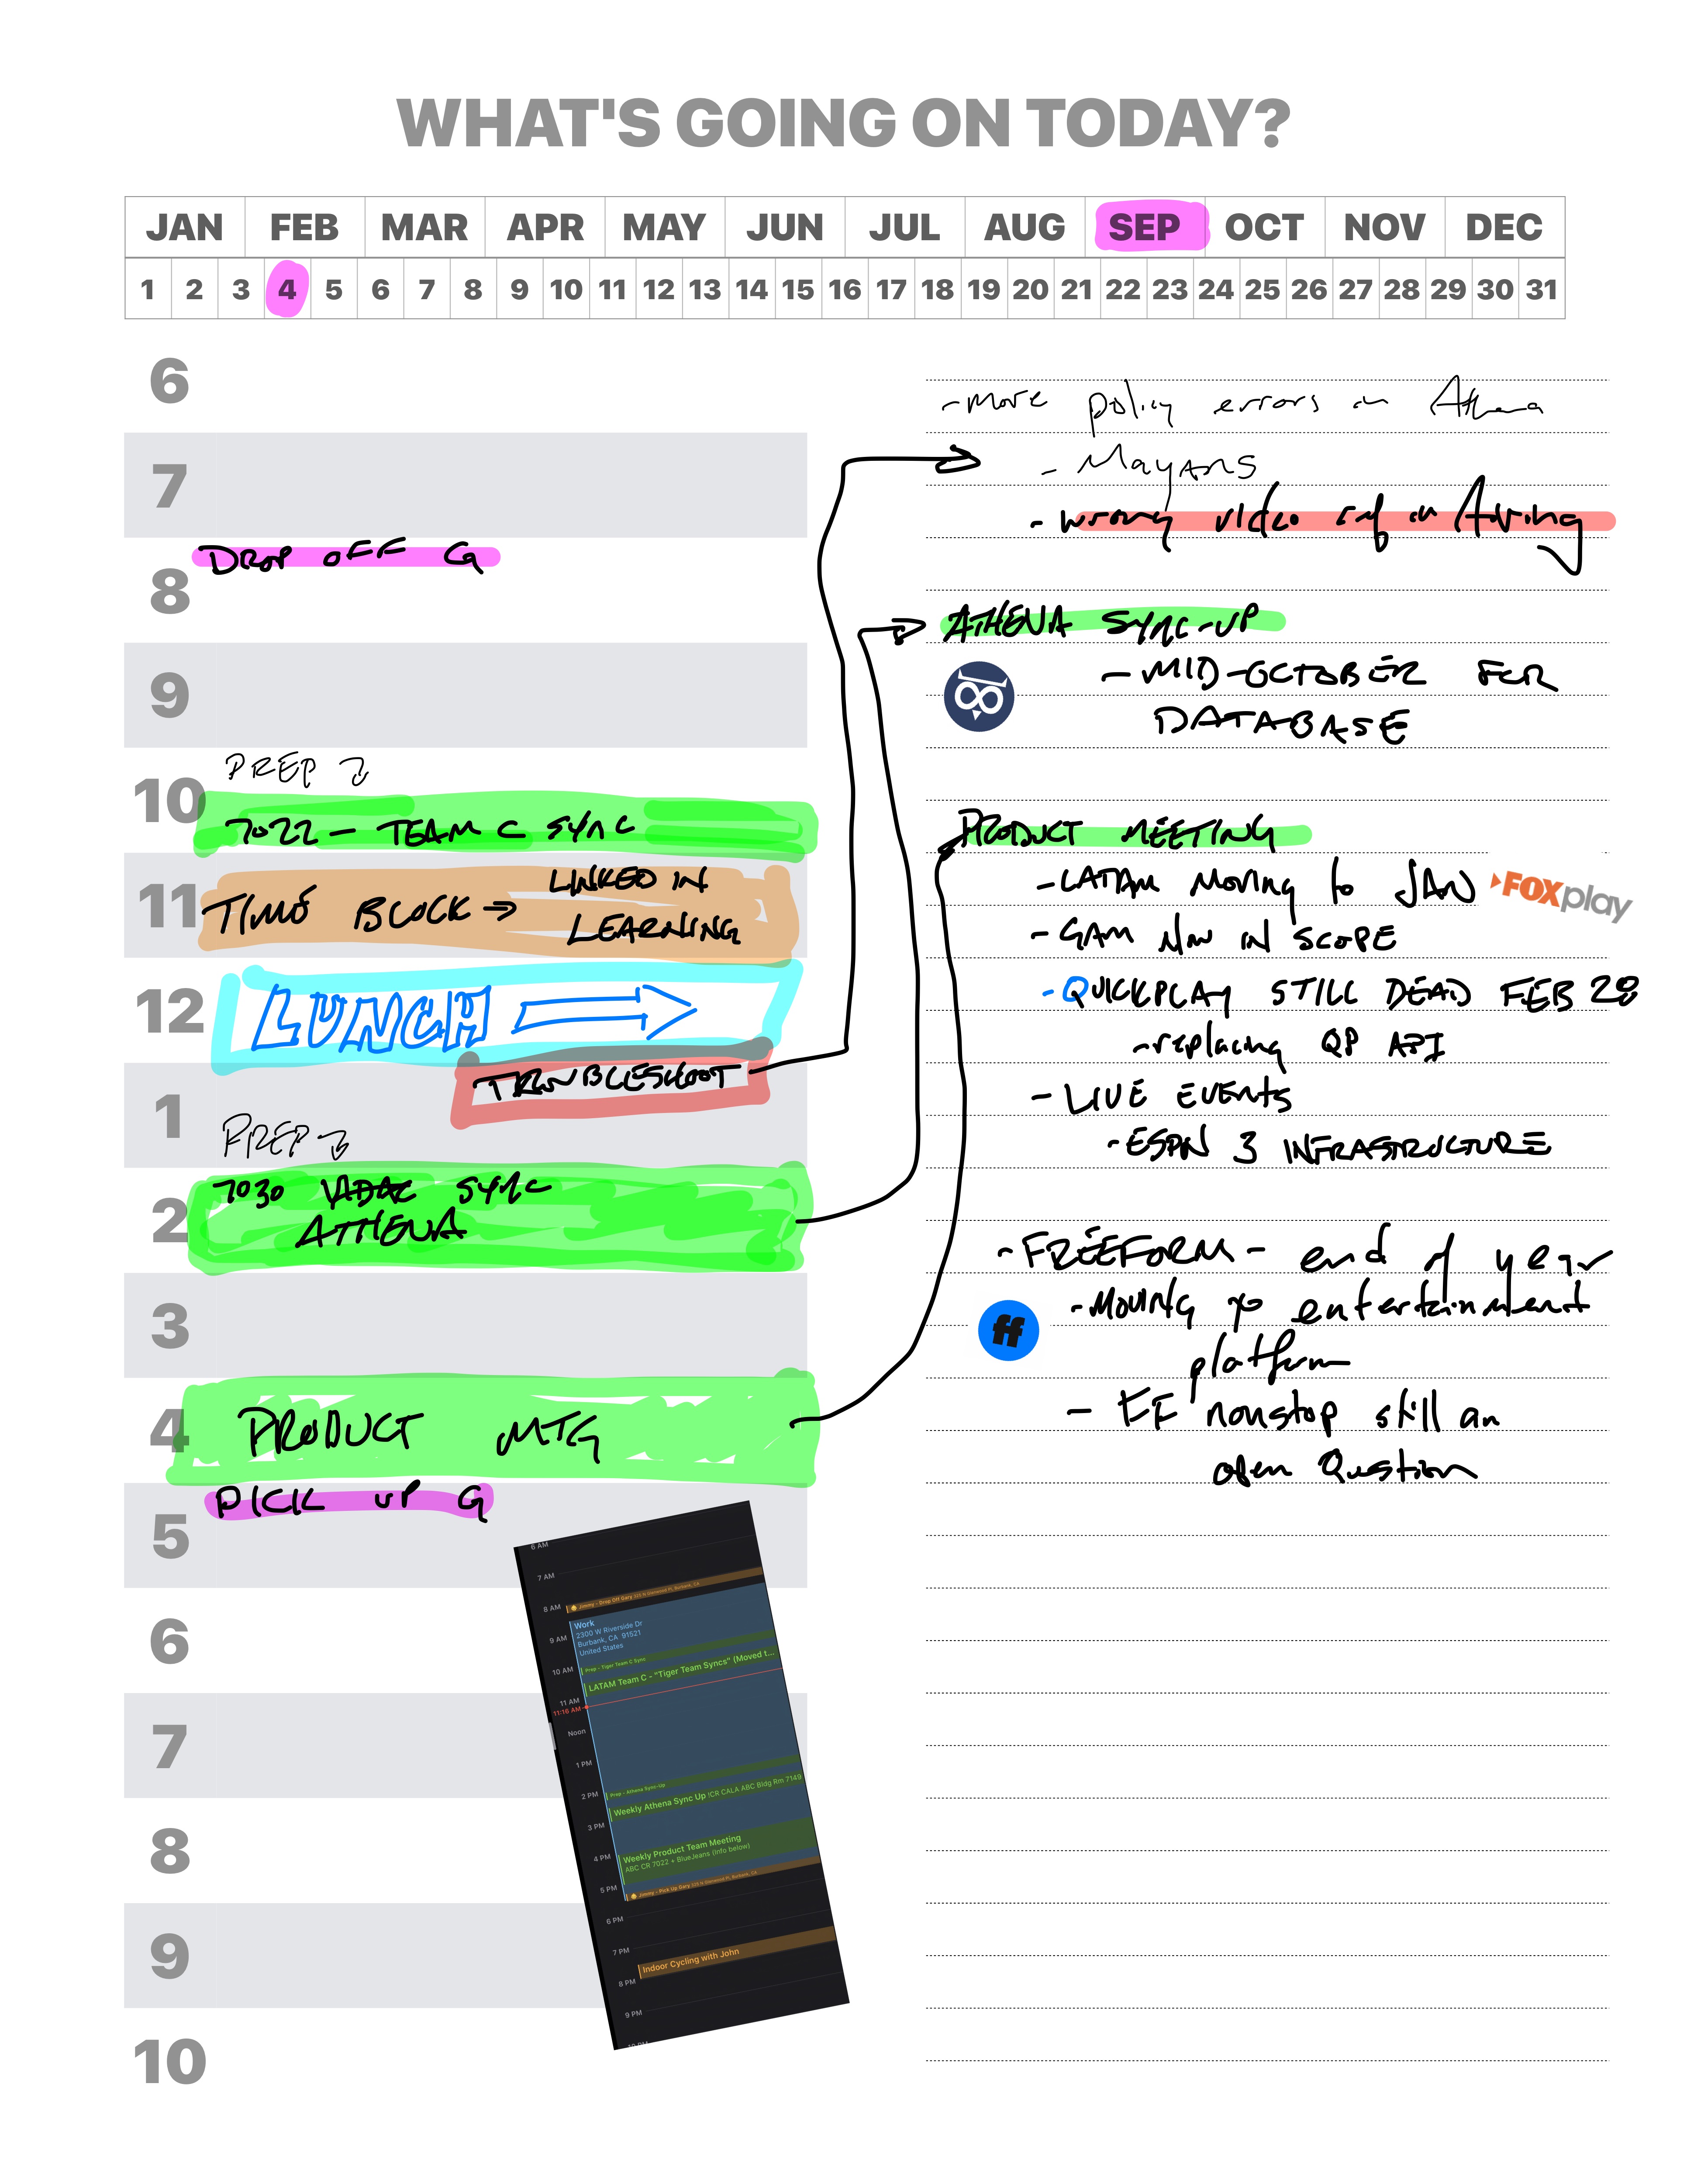 WHAT'S GOING ON TODAY?
JAN FEB MAR APR MAY JUN JUL AUG SEP OCT NOV DEC
1 2 3 4 5 6 7 8 9 10 11 12 13 14 15 16 17 18 19 20 21 22 23 24 25 26 27 28 29 30 31
6
7
DROP OFF G
8
9
PREP
10
7022 - TEAM C SYNC
11
TIME BLOCK → LINKED IN
LEARNING
12
LUNCH
TROUBLESHOOT
1
PREP
7030 SYNC
2
ATHENA
3
4
PRODUCT MTG
PICK UP G
5
6
7
8
9
10
6 AM
7 AM
8 AM
Jimmy - Drop Off Gary
Work
9 AM
2300 W Riverside Dr
Burbank, CA 91521
United States
10 AM
Prep - Tiger Team C Sync
LATAM Team C - "Tiger Team Syncs" (Moved t...
11 AM
11:16 AM
Noon
1 PM
2 PM
Prep - Athena Sync-Up
Weekly Athena Sync Up ICR CALA ABC Bldg Rm 7149
3 PM
Weekly Product Team Meeting
4 PM
ABC CR 7022 + BlueJeans (info below)
5 PM
Jimmy - Pick Up Gary
6 PM
7 PM
Indoor Cycling with John
8 PM
9 PM
- more policy errors in Athena
- Mayans
- wrong video in
ATHENA SYNC-UP
- MID-OCTOBER FOR
DATABASE
PRODUCT MEETING
- LATAM Moving to JAN
FOXplay
- GAM Now IN SCOPE
- QUICKPLAY STILL DEAD FEB 28
- replacing QP API
- LIVE EVENTS
- ESPN 3 INFRASTRUCTURE
- FREEFORM - end of year
- MOVING to entertainment
ff
platform
- FF nonstop still an
open Question